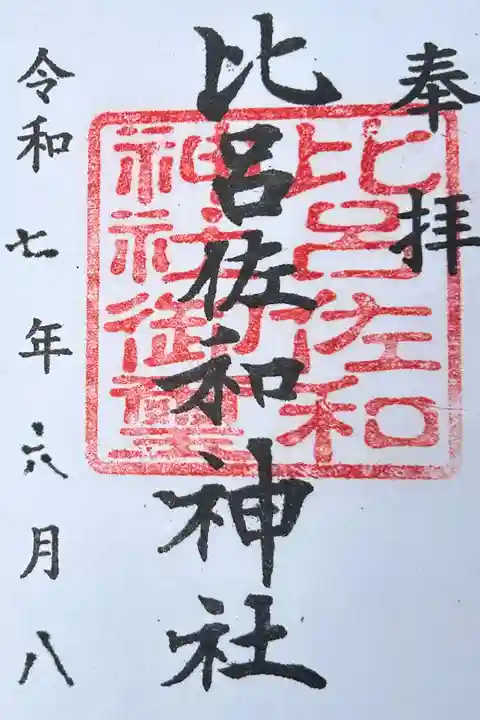 奉拝
比呂佐和神社
令和七年六月八
比呂佐和
神社御璽